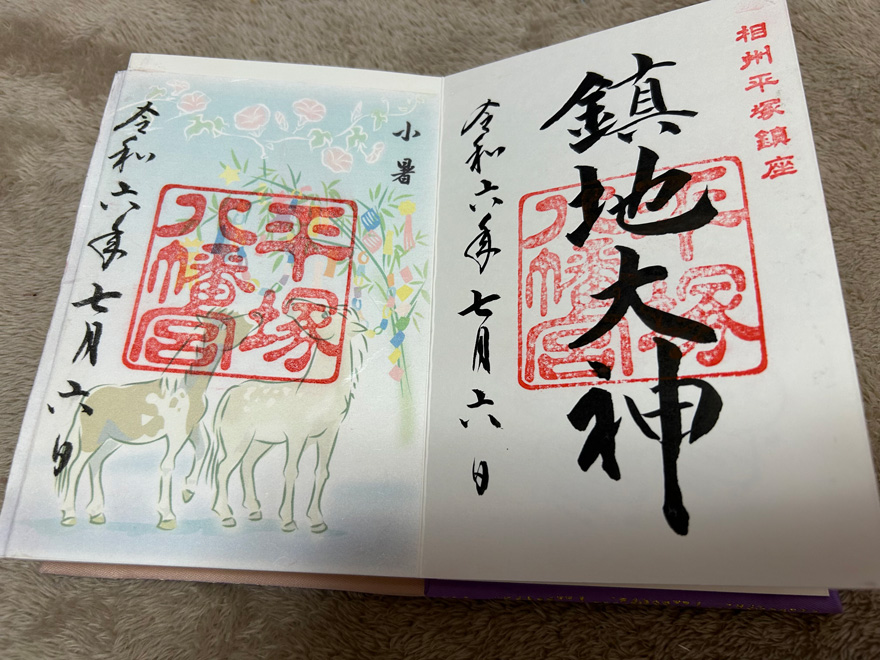 相州平塚鎮座
鎮地大神
平塚
八幡宮
令和六年七月六日
小暑
平塚
八幡宮
令和六年七月六日